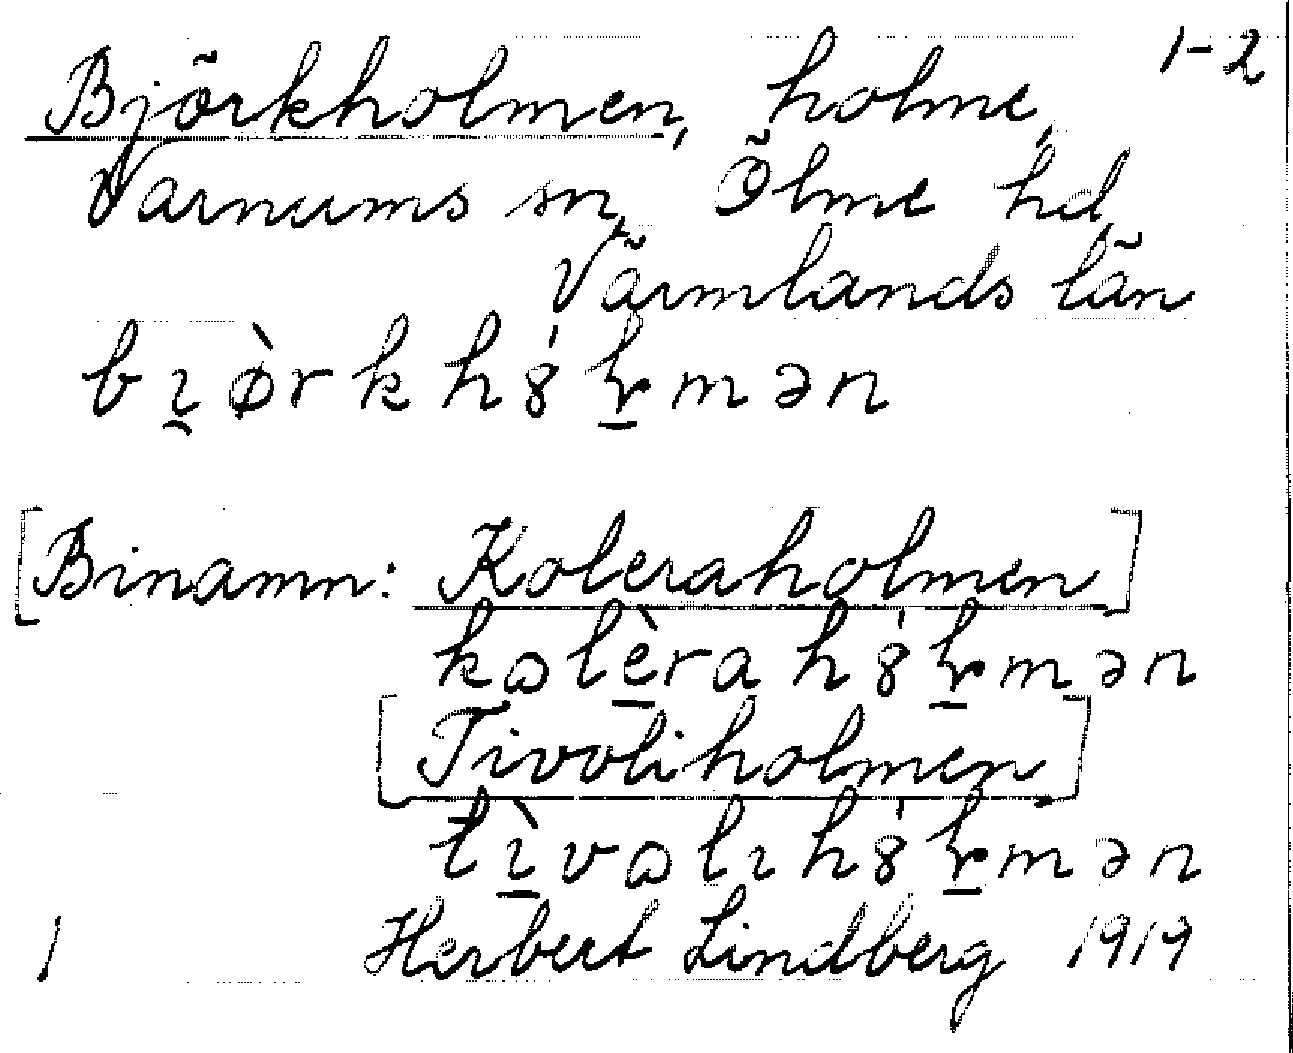 1-2
Björkholmen, holme,
Varnums sn, Ölme hd,
Värmlands län
bı̯ø̀rkh8́ꞎmən
[Binamn: Koleraholmen]
kɷlèrah8́ꞎmən
[Tivoliholmen]
tı̀vɷlıh8́ꞎmən
1 Herbert Lindberg 1919